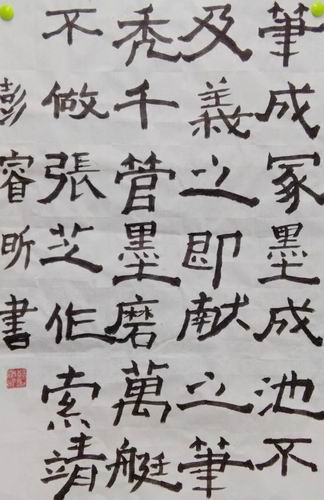 筆成冢墨成池不
及羲之即献之筆
秃千管墨磨萬艇
不做張芝作索靖
彭睿昕書